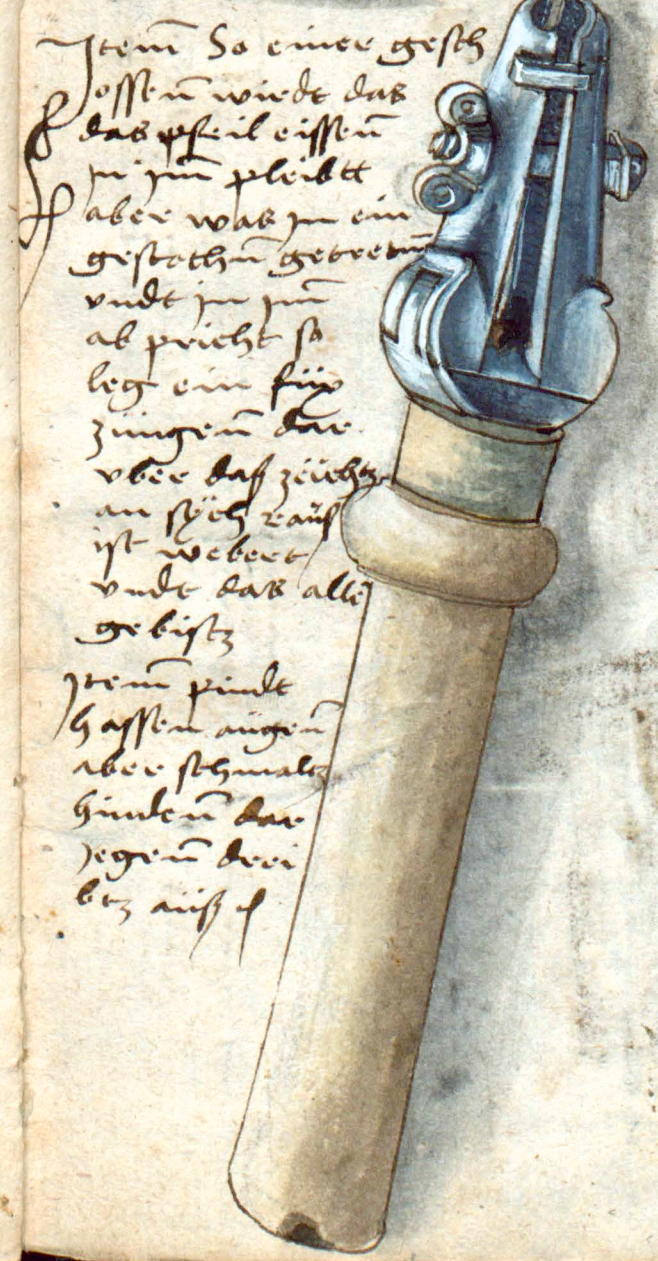 Jtem̅ So einer gesch
ossen̅ wirdt das
das pfeil eissen̅
in jm̅ pleibtt
aber was in ein
gestochn̅ getretn̅
vndt in jm̅
ab pricht so
leg ein füx
züngen̅ dar
vber daß zeichtz
an sÿch rauß
ist webert
vndt das alle
gebistz
Jtem̅ pindt
hassen augen̅
aber schmaltz
hinden̅ dar
gegen̅ drei
btz auß